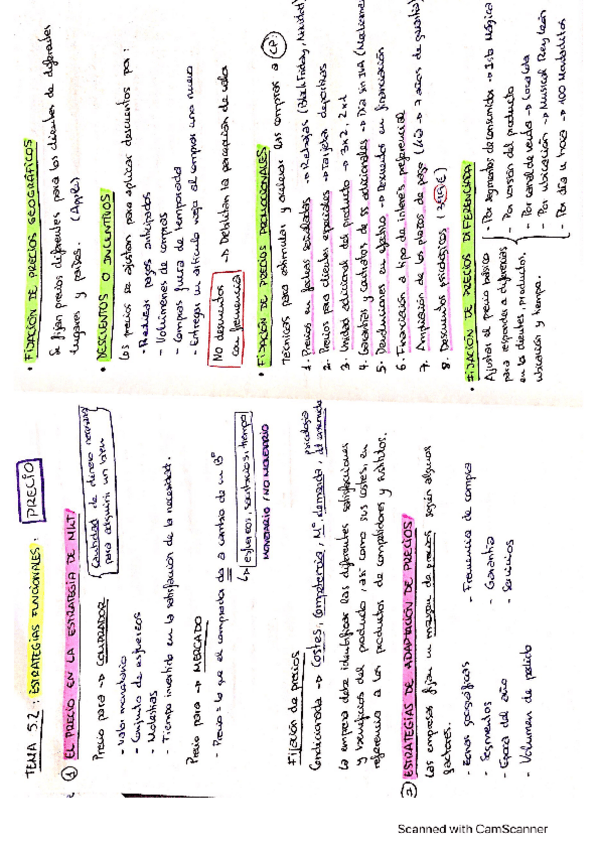 TEMA 5.2: ESTRATEGIAS FUNCIONALES: PRECIO
① EL PRECIO EN LA ESTRATEGIA DE MKT
Precio para → COMPRADOR
Cantidad de dinero necesaria
para adquirir un bien
- Valor monetario
- Conjunto de esfuerzos
- Molestias
- Tiempo invertido en la satisfacción de la necesidad.
Precio para → MERCADO
- Precio: lo que el comprador da a cambio de un Bº
↳ esfuerzo, sacrificios, tiempo
MONETARIO / NO MONETARIO
Fijación de precios
Condicionada → Costes, competencia, Mº, demanda, psicología
La empresa debe identificar las diferentes satisfacciones
y beneficios del producto, así como sus costes, en
referencia a los productos de competidores y sustitutos.
② ESTRATEGIAS DE ADAPTACIÓN DE PRECIOS
Las empresas fijan un margen de precios según algunos
factores.
- Zonas geográficas
- Segmentos
- Época del año
- Volumen de pedido
- Frecuencia de compra
- Garantía
- Servicios
• FIJACIÓN DE PRECIOS GEOGRÁFICOS
Se fijan precios diferentes para los clientes de diferentes
lugares y países. (Apple)
• DESCUENTOS O INCENTIVOS
Los precios se ajustan para aplicar descuentos por:
- Realizar pagos anticipados
- Volúmenes de compras
- Compras fuera de temporada
- Entregar un artículo viejo al comprar uno nuevo
No descuentos
con frecuencia
→ Debilitan la percepción de valor
• FIJACIÓN DE PRECIOS PROMOCIONALES
Técnicas para estimular y acelerar las compras a CP:
1. Precios en fechas señaladas → Rebajas (Black Friday, Navidad)
2. Precios para clientes especiales → Tarjeta deportivas
3. Unidad adicional del producto → 3x2, 2x1
4. Garantías y contratos de ss adicionales → Día sin IVA
5. Deducciones en efectivo → Descuentos en financiación
6. Financiación a tipo de interés preferencial
7. Ampliación de los plazos de pago → 7 años de garantía
8. Descuentos psicológicos
• FIJACIÓN DE PRECIOS DIFERENCIADA
Ajustar el precio básico
para responder a diferencias
en la clientes, productos,
ubicación y tiempo.
- Por segmentos de consumidor → Isla Mágica
- Por versión del producto
- Por canal de venta → Coca Cola
- Por ubicación → Musical Rey León
- Por día u hora → 100 Montaditos
Scanned with CamScanner